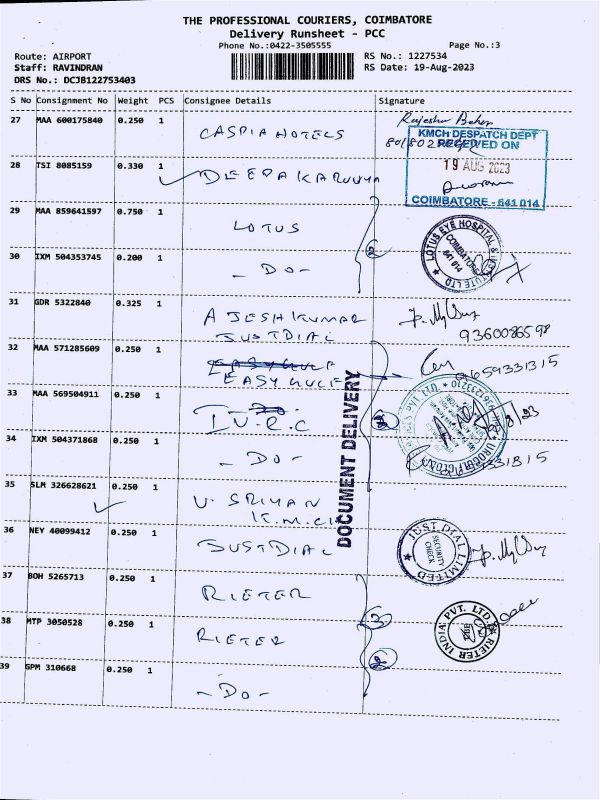 THE PROFESSIONAL COURIERS, COIMBATORE
Delivery Runsheet - PCC
Phone No.:0422-3505555 Page No.:3
Route: AIRPORT RS No.: 1227534
Staff: RAVINDRAN RS Date: 19-Aug-2023
DRS No.: DCJB122753403
S No Consignment No Weight PCS Consignee Details Signature
27 MAA 600175840 0.250 1 CASPIA HOTELS
KMCH DESPATCH DEPT
RECEIVED ON
19 AUG 2023
COIMBATORE - 641 014
28 TSI 8085159 0.330 1 DEEPA KARUNYA
29 MAA 859641597 0.750 1 LOTUS
LOTUS EYE HOSPITAL & INSTITUTE LTD
COIMBATORE
641 014
30 IXM 504353745 0.200 1 - DO -
31 GDR 5322840 0.325 1 AJESH KUMAR
JUSTDIAL
9360086598
32 MAA 571285609 0.250 1
EASY GULF
9659331315
DOCUMENT DELIVERY
33 MAA 569504911 0.250 1
I.U.R.C
34 IXM 504371868 0.250 1 - DO -
35 SLM 326628621 0.250 1 V. SRIHAN
36 NEY 40099412 0.250 1 JUSTDIAL
JUST DIAL LIMITED
SECURITY
CHECK
37 BOH 5265713 0.250 1 RIETER
38 MTP 3050528 0.250 1 RIETER
RIETER INDIA PVT. LTD.
39 GPM 310668 0.250 1 - DO -